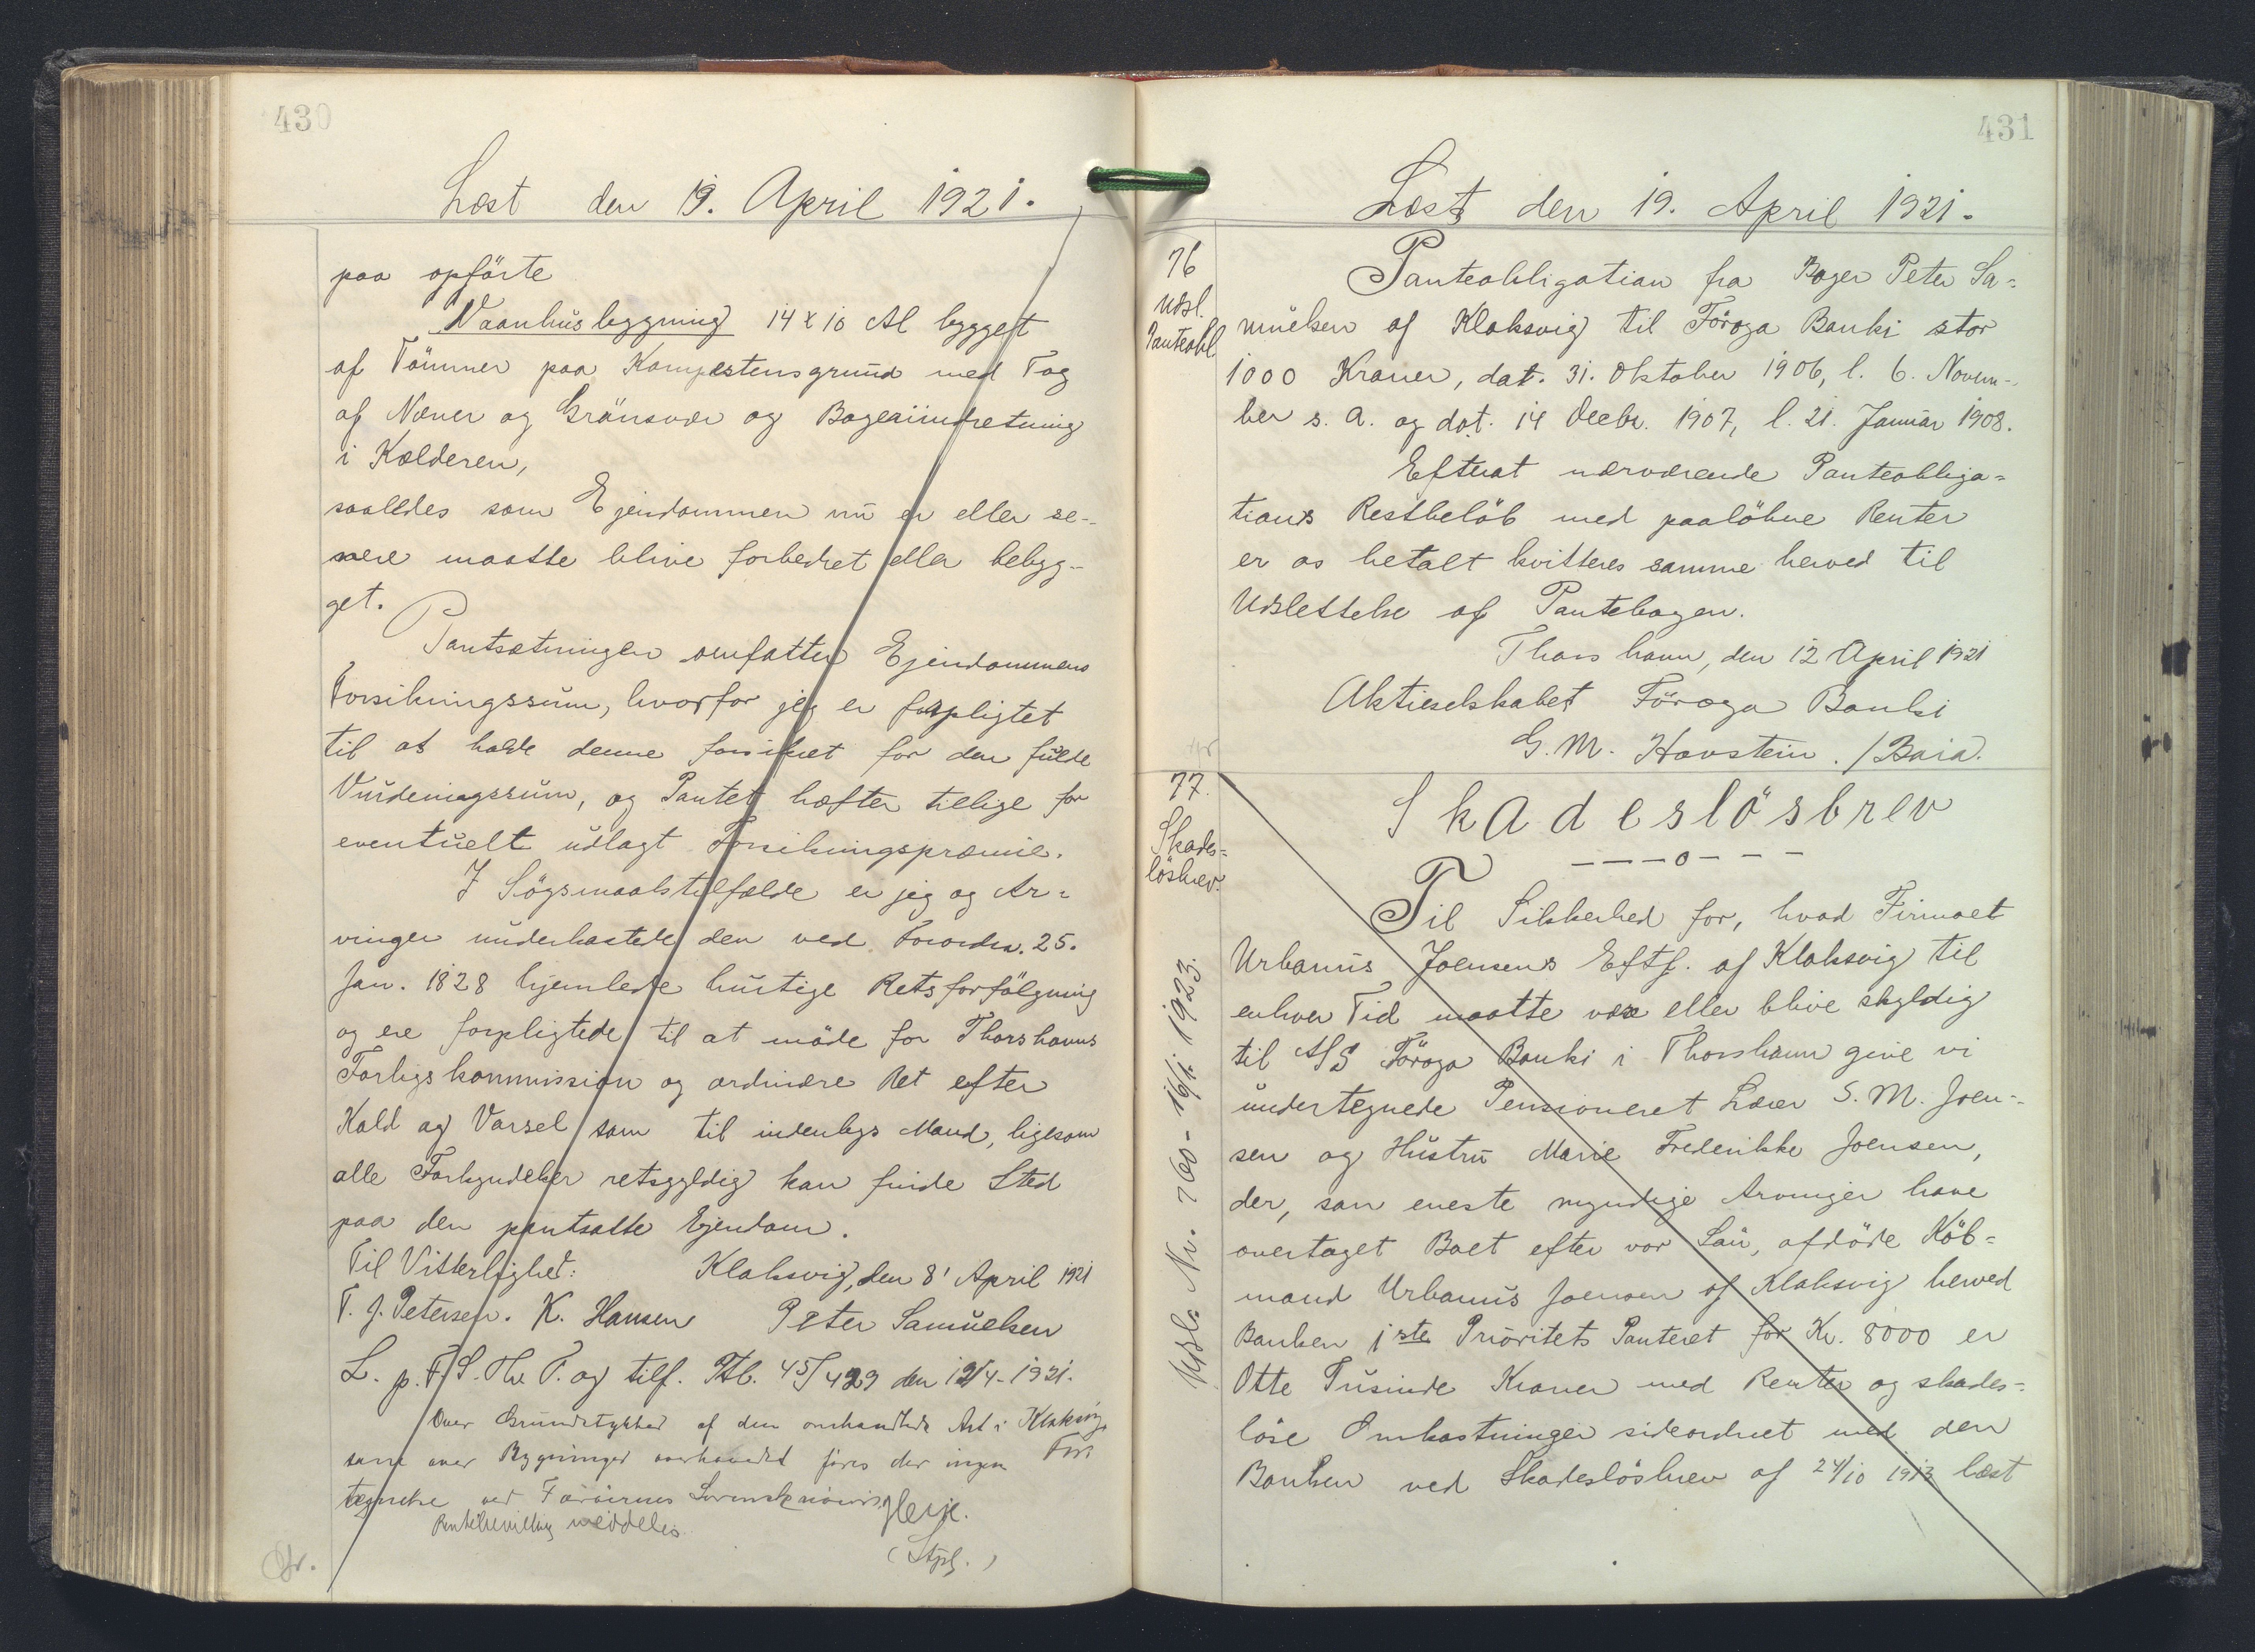 430
Læst den 19. April 1921.
paa opførte
Vaanhusbygning 14 x 10 Al bygget
af Tømmer paa Kampestensgrund med Tag
af Næver og Grønsvær og Bageriindretning
i Kælderen,
saaledes som Ejendommen nu er eller se-
nere maatte blive forbedret eller bebyg-
get.
Pantsætningen omfatter Ejendommens
Forsikringssum, hvorfor jeg er forpligtet
til at holde denne forsikret for den fulde
Vurderingssum, og Pantet hæfter tillige for
eventuelt udlagt Forsikringspræmie.
I Søgsmaalstilfælde er jeg og Ar=
vinger underkastede den ved Forordn. 25.
Jan. 1828 hjemlede hurtige Retsforfølgning
og ere forpligtede til at møde for Thorshavns
Forligskommission og ordinære Ret efter
Kald og Varsel som til indenbys Mand, ligesom
alle Forkyndelser retsgyldig kan finde Sted
paa den pantsatte Ejendom.
Til Vitterlighed: Klaksvig, den 8' April 1921
T. J. Petersen. K. Hansen Peter Samuelsen
L. p. F. S. Th. T. og tilf. Ptb. 45/429 den 19/4-1921.
Over Grundstykker af den omhandlede Art i Klaksvig
samt over Bygninger overhovedet føres der ingen For
tegnelse ved Færøernes Sorenskriveri.
meddeles.
(Stpl.)
431
Læst den 19. April 1921.
76
Udsl.
Panteobl
Panteobligation fra Bager Peter Sa=
muelsen af Klaksvig til Föroya Banki stor
1000 Kroner, dat. 31. Oktober 1906, l. 6. Novem-
ber s. A. og dat. 14 Decbr. 1907, l. 21. Januar 1908.
Efterat nærværende Panteobliga=
tions Restbeløb med paaløbne Renter
er os betalt kvitteres samme herved til
Udslettelse af Pantebogen.
Thorshavn, den 12 April 1921
Aktieselskabet Föroya Banki
G. M. Hovstein. / Baia.
77.
Skades=
løsbrev.
Udsl. Nr. 760 - 16/1 1923.
Skadesløsbrev
Til Sikkerhed for, hvad Firmaet
Urbanus Joensens Eftf. af Klaksvig til
enhver Tid maatte være eller blive skyldig
til A/S Föroya Banki i Thorshavn give vi
undertegnede Pensioneret Lærer S. M. Joen-
sen og Hustru Marie Frederikke Joensen,
der, som eneste myndige Arvinger have
overtaget Boet efter vor Søn, afdøde Köb=
mand Urbanus Joensen af Klaksvig herved
Banken 1ste Prioritets Panteret for Kr. 8000 er
Otte Tusinde Kroner med Renter og skades=
løse Omkostninger sideordnet med den
Banken ved Skadesløsbrev af 24/10 1913 læst